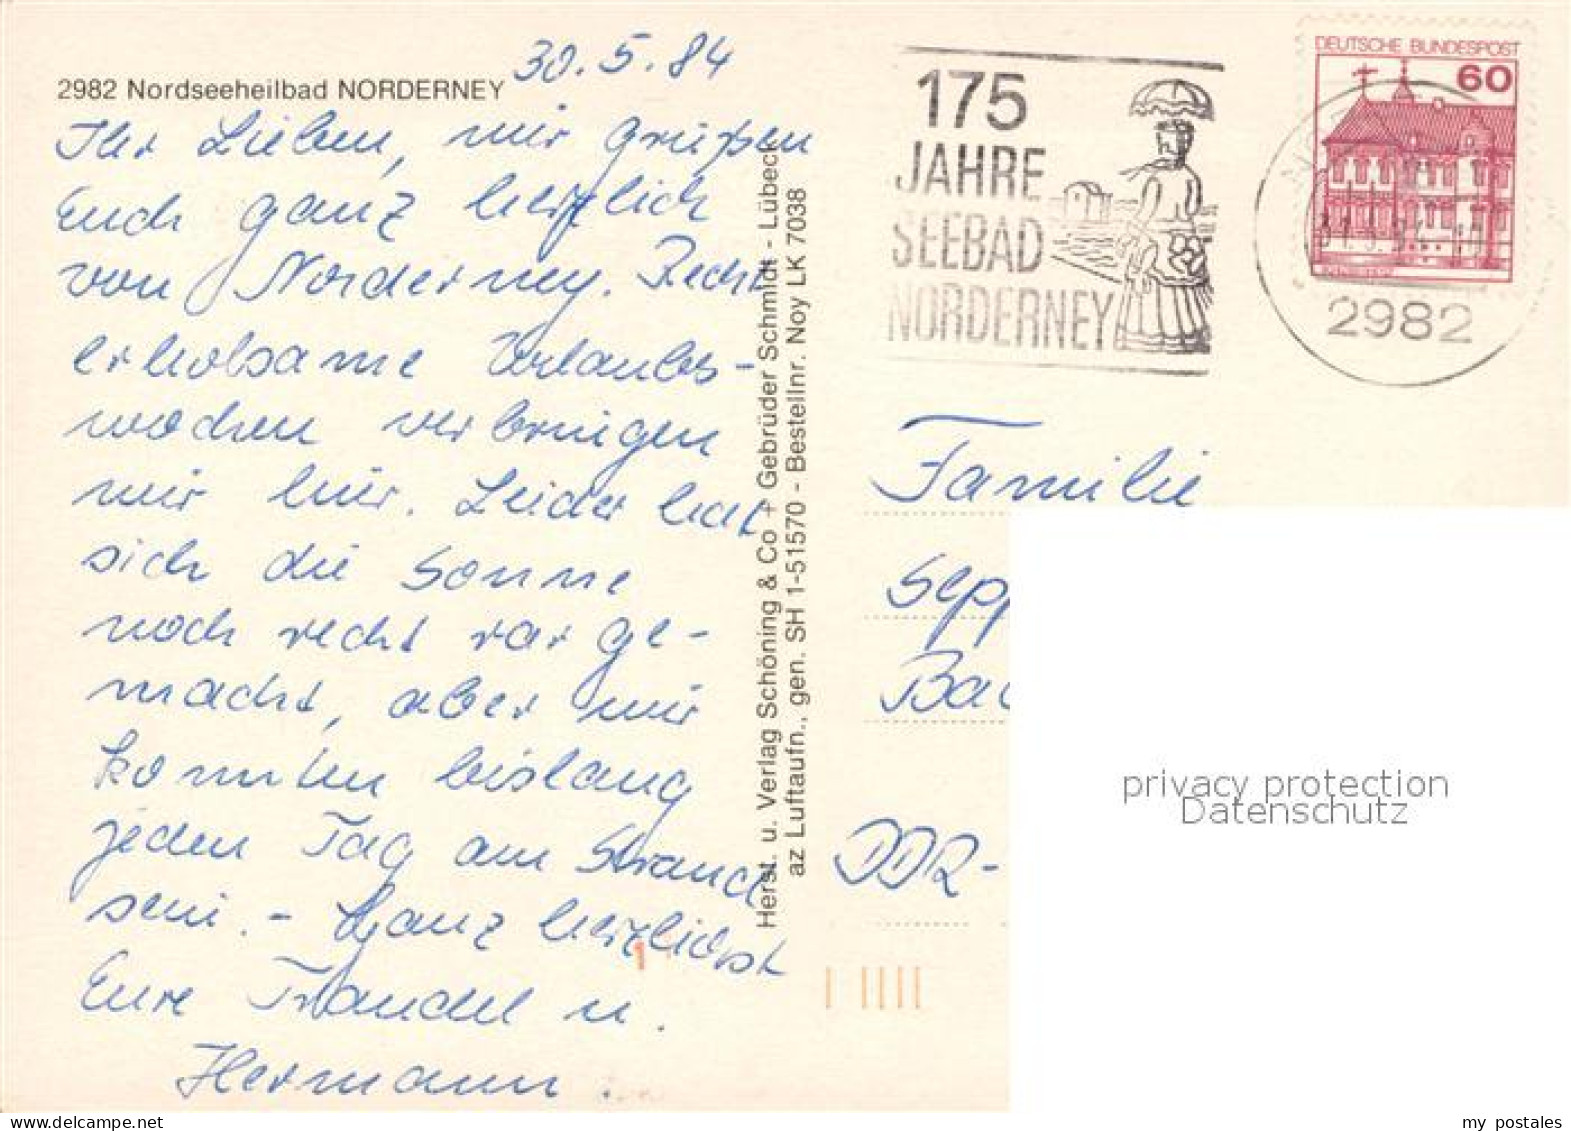 30.5.84
2982 Nordseeheilbad NORDERNEY
Ihr Lieben, wir grüßen
Euch ganz herzlich
von Norderney. Recht
erholsame Urlaubs-
wochen verbringen
wir hier. Leider hat
sich die Sonne
noch recht rar ge-
macht, aber wir
konnten bislang
jeden Tag am Strand
sein. - Ganz herzlichst
Eure Traudel u.
Hermann.
Herst. u. Verlag Schöning & Co + Gebrüder Schmidt - Lübeck
az Luftaufn., gen. SH 1-51570 - Bestellnr. Noy LK 7038
175
JAHRE
SEEBAD
NORDERNEY
DEUTSCHE BUNDESPOST
60
2982
Familie
Sepp
Ba
DDR-
privacy protection
Datenschutz
my postales